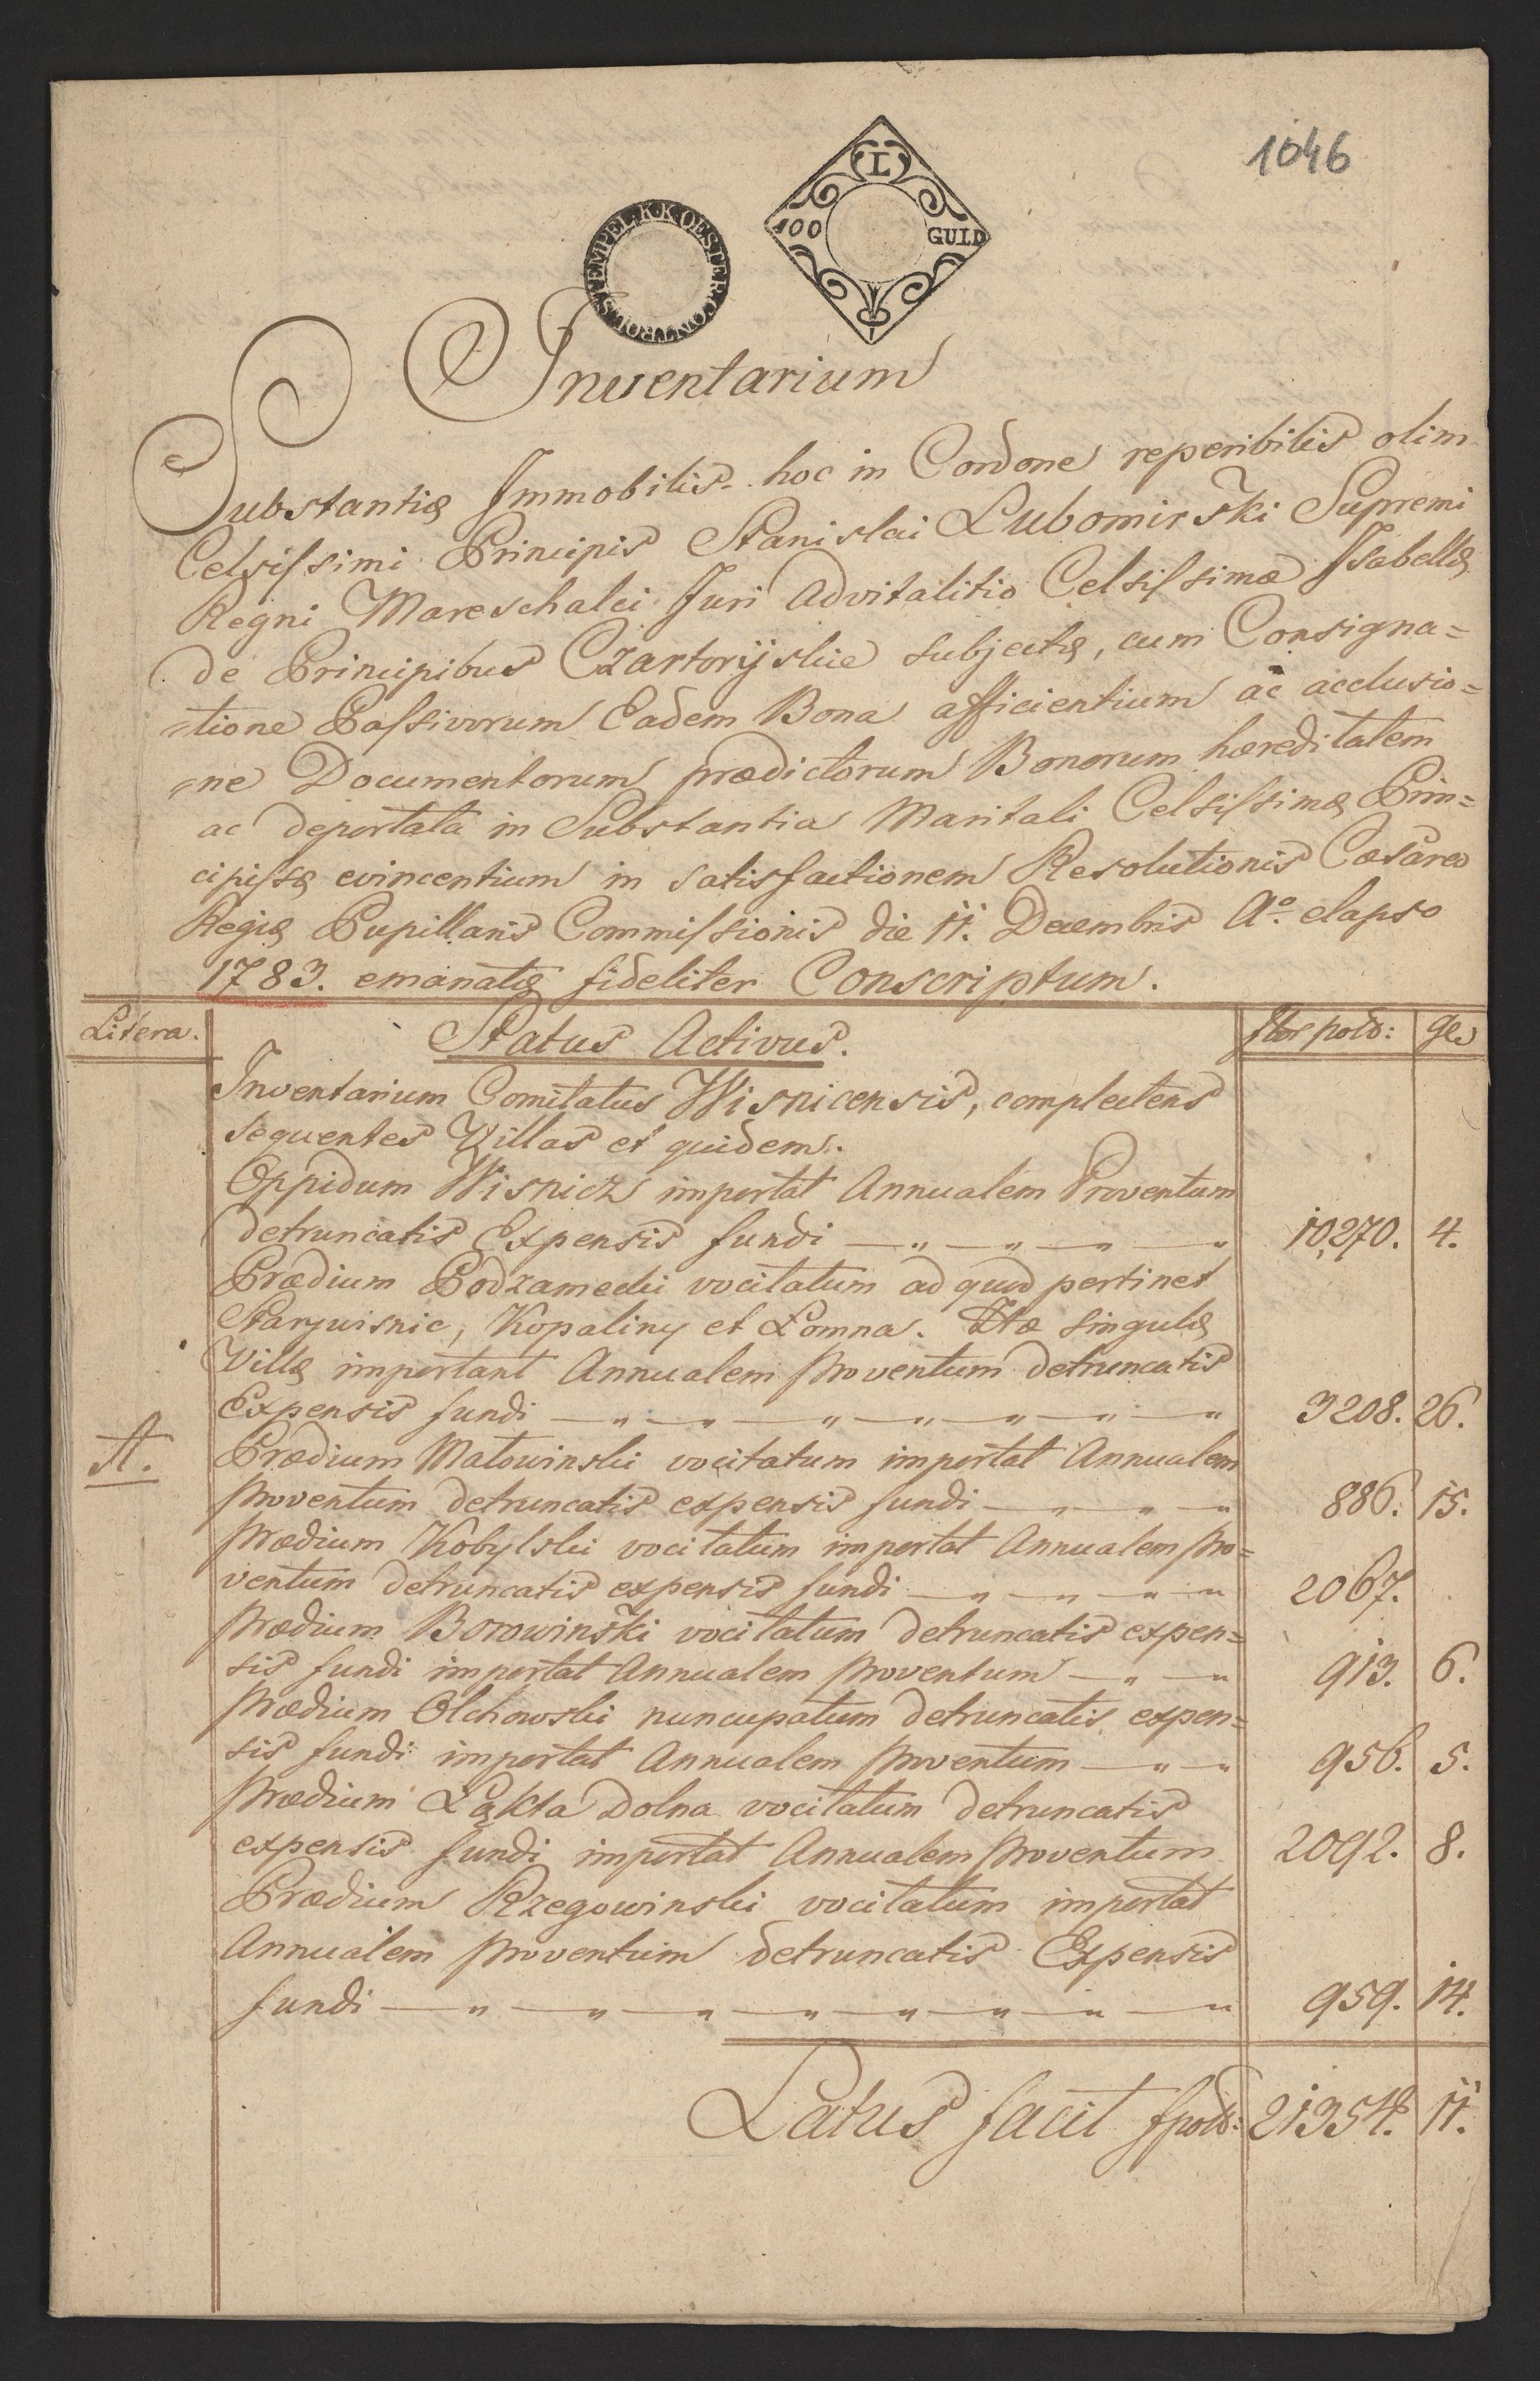 1046
STEMPEL. K. K. OESTER. CONTROL
L
100 GULD
Inventarium
Substantiæ Immobilis hoc in Cordone reperibilis olim
Celsissimi Principis Stanislai Lubomirski Supremi
Regni Mareschalci Juri Advitalitio Celsissimæ Isabellæ
de Principibus Czartoryskie subjectæ, cum Consigna=
=tione Passivorum Eadem Bona afficientium ac acclusio=
=ne Documentorum prædictorum Bonorum hæreditatem
ac deportata in Substantia Maritali Celsissimæ Prin=
cipissæ evincentium in satisfactionem Resolutionis Cæsareo
Regiæ Pupillaris Commissionis die 11. Decembris Aº elapso
1783. emanatæ fideliter Conscriptum.
Litera. Status Activus. flor pold: gr
Inventarium Comitatus Wisnicensis, complectens
sequentes Villas et quidem.
Oppidum Wisnicz importat Annualem Proventum
detruncatis Expensis fundi — " — " — " — " 10,270. 4.
Prædium Podzamecki vocitatum ad quod pertinet
Starywisnic, Kopaliny et Lomna. Hæ singulæ
Villæ important Annualem proventum detruncatis
Expensis fundi — " — " — " — " — " — " — " 3208. 26.
A. Prædium Matowinski vocitatum importat Annualem
proventum detruncatis expensis fundi — " — " — " 886. 15.
prædium Kobylski vocitatum importat Annualem pro=
ventum detruncatis expensis fundi — " — " — " — " 2067.
prædium Borowinski vocitatum detruncatis expen=
sis fundi importat Annualem proventum — " — " 913. 6.
prædium Olchowski nuncupatum detruncatis expen=
sis fundi importat Annualem proventum — " — " 956. 5.
prædium Łąkta Dolna vocitatum detruncatis
expensis fundi importat Annualem proventum 2092. 8.
Prædium Rzegowinski vocitatum importat
Annualem proventum detruncatis Expensis
fundi — " — " — " — " — " — " — " — " 959. 14.
Latus facit fpold: 21354. 11.